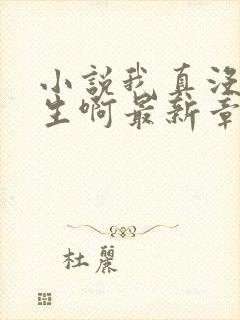 小説我真沒
生啊最新章
杜麗